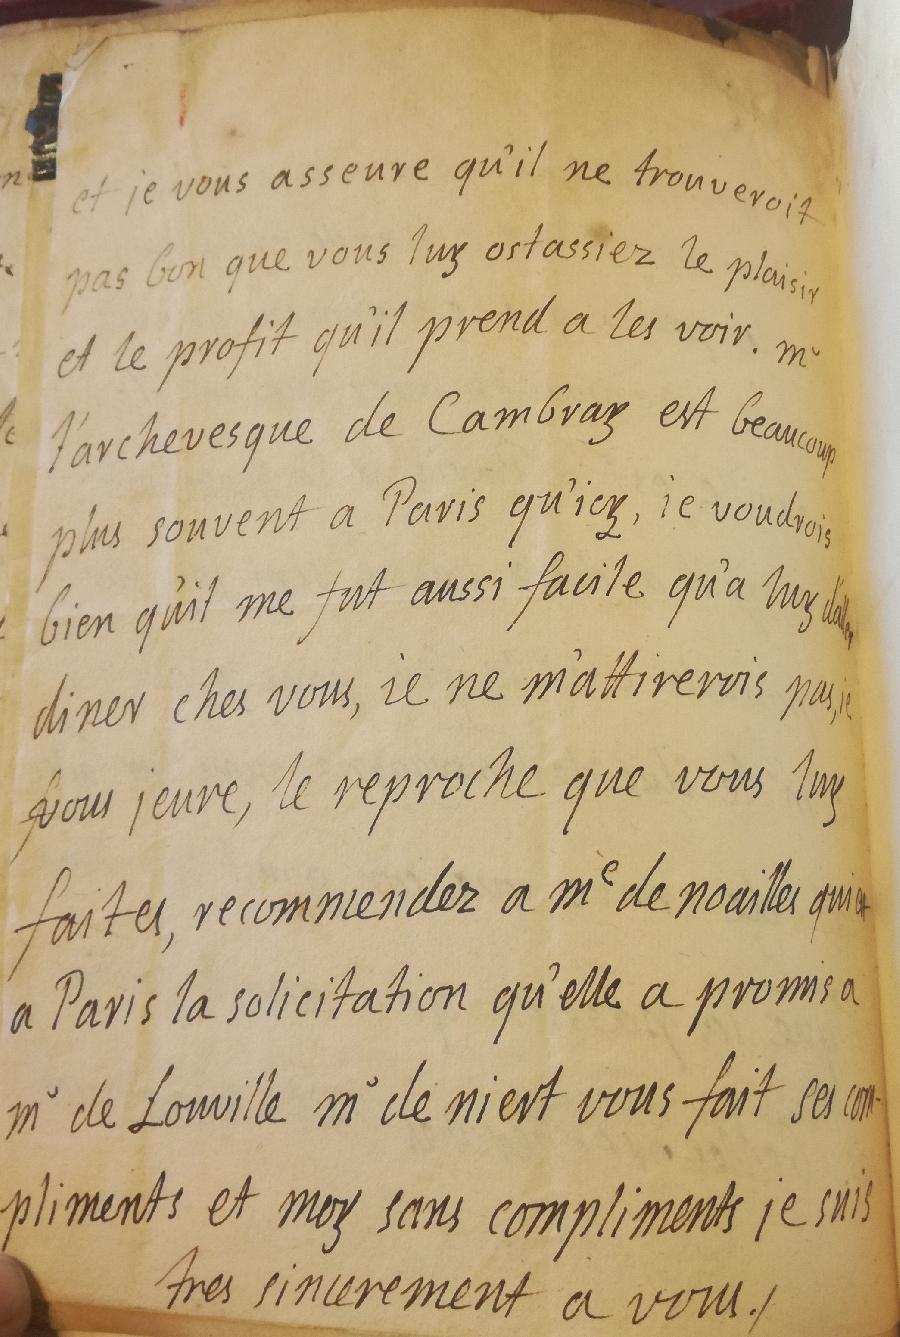 et je vous asseure qu'il ne trouveroit
pas bon que vous luy ostassiez le plaisir
et le profit qu'il prend a les voir. mr
l'archevesque de Cambray est beaucoup
plus souvent a Paris qu'icy, ie voudrois
bien qu'il me fut aussi facile qu'a luy d'aller
diner ches vous, ie ne m'attirerois pas, ie
vous jeure, le reproche que vous luy
faites, recommendez a me de noailles qui est
a Paris la solicitation qu'elle a promis a
mr de Louville mr de niert vous fait ses com-
pliments et moy sans compliments je suis
tres sincerement a vous./